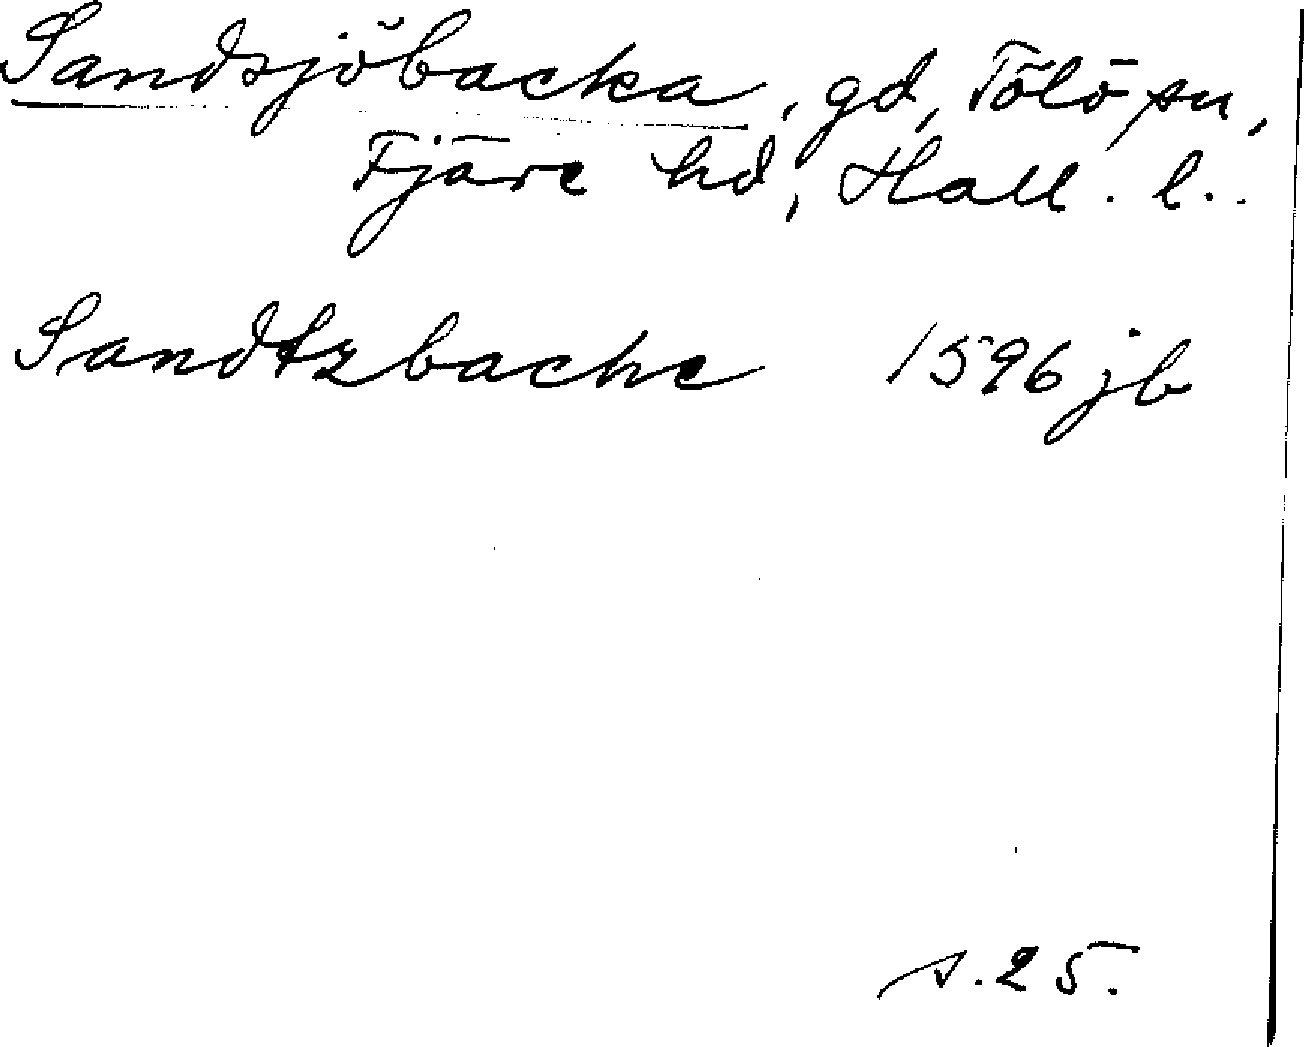 Sandsjöbacka, gd, Tölö sn,
Fjäre hd, Hall. l.
Sandtzbacke 1596 jb
s. 25.